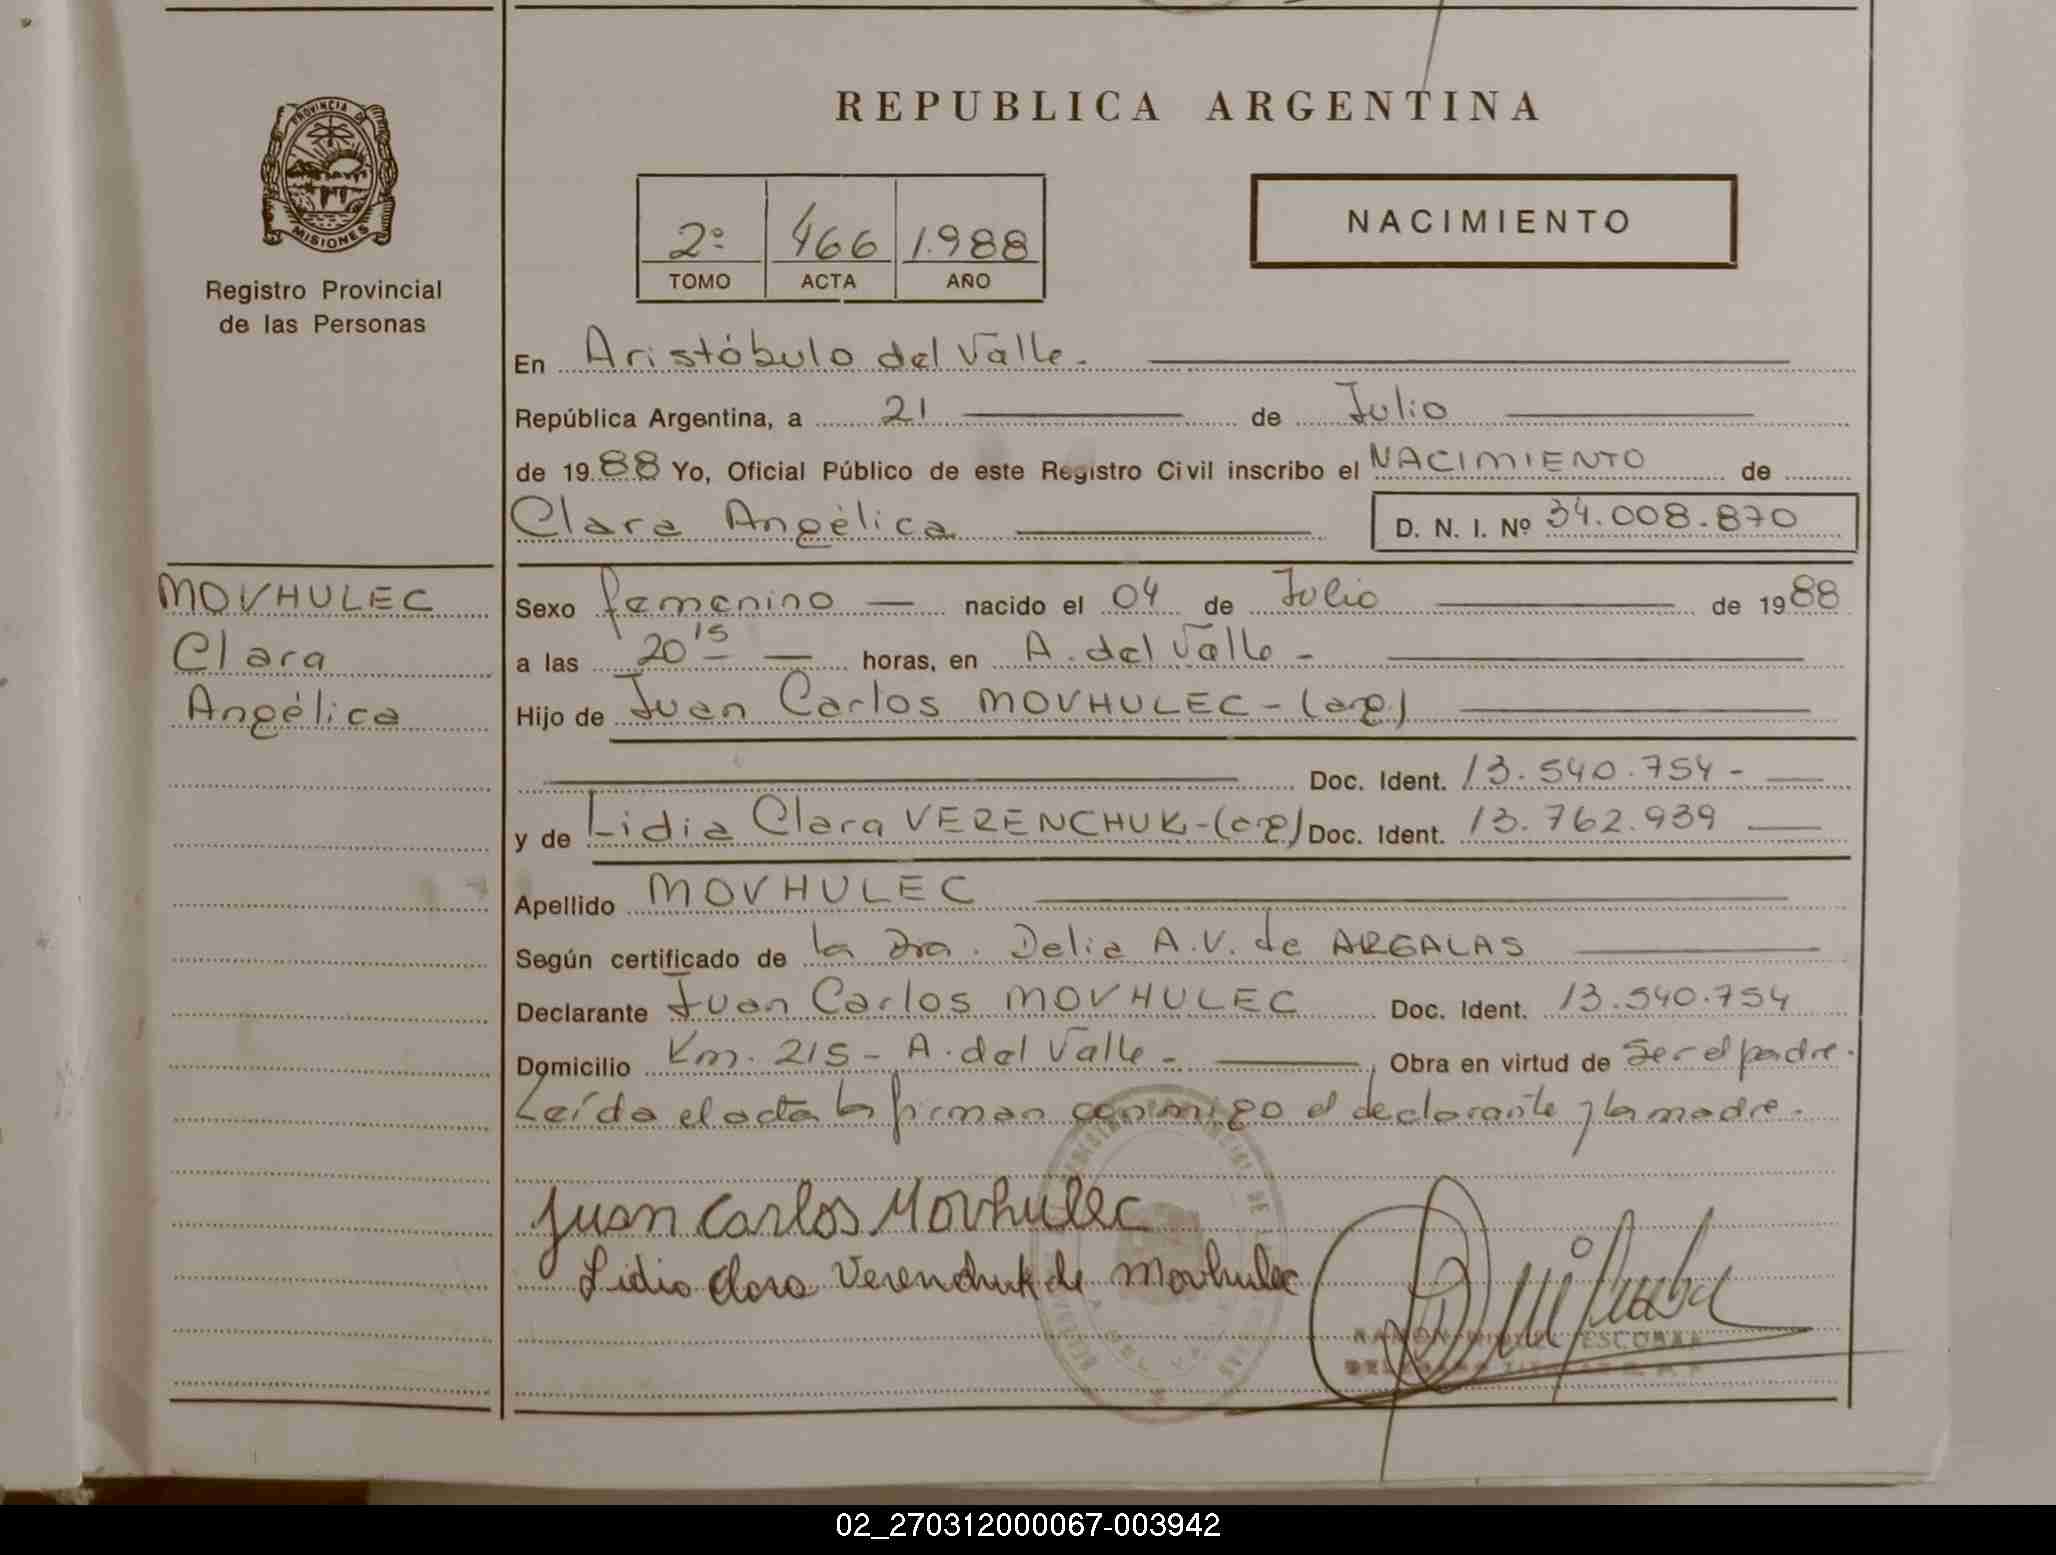 PROVINCIA DE
MISIONES
Registro Provincial
de las Personas
REPUBLICA ARGENTINA
2º 466 1.988
TOMO ACTA AÑO
NACIMIENTO
En Aristóbulo del Valle.
República Argentina, a 21 de Julio
de 1988 Yo, Oficial Público de este Registro Civil inscribo el NACIMIENTO de
Clara Angélica D. N. I. Nº 34.008.870
MOVHULEC
Clara
Angélica
Sexo femenino — nacido el 04 de Julio de 1988
a las 20 15 — horas, en A. del Valle -
Hijo de Juan Carlos MOVHULEC - (arg)
Doc. Ident. 13.540.754 -
y de Lidia Clara VERENCHUK - (arg) Doc. Ident. 13.762.939
Apellido MOVHULEC
Según certificado de la Dra. Delia A.V. de ARGALAS
Declarante Juan Carlos MOVHULEC Doc. Ident. 13.540.754
Domicilio Km. 215 - A. del Valle - Obra en virtud de ser el padre.
Leída el acta la firman conmigo el declarante y la madre.
Juan Carlos Movhulec
Lidia Clara Verenchuk de Movhulec
RAMON MIGUEL ESCOBAR
02_270312000067-003942